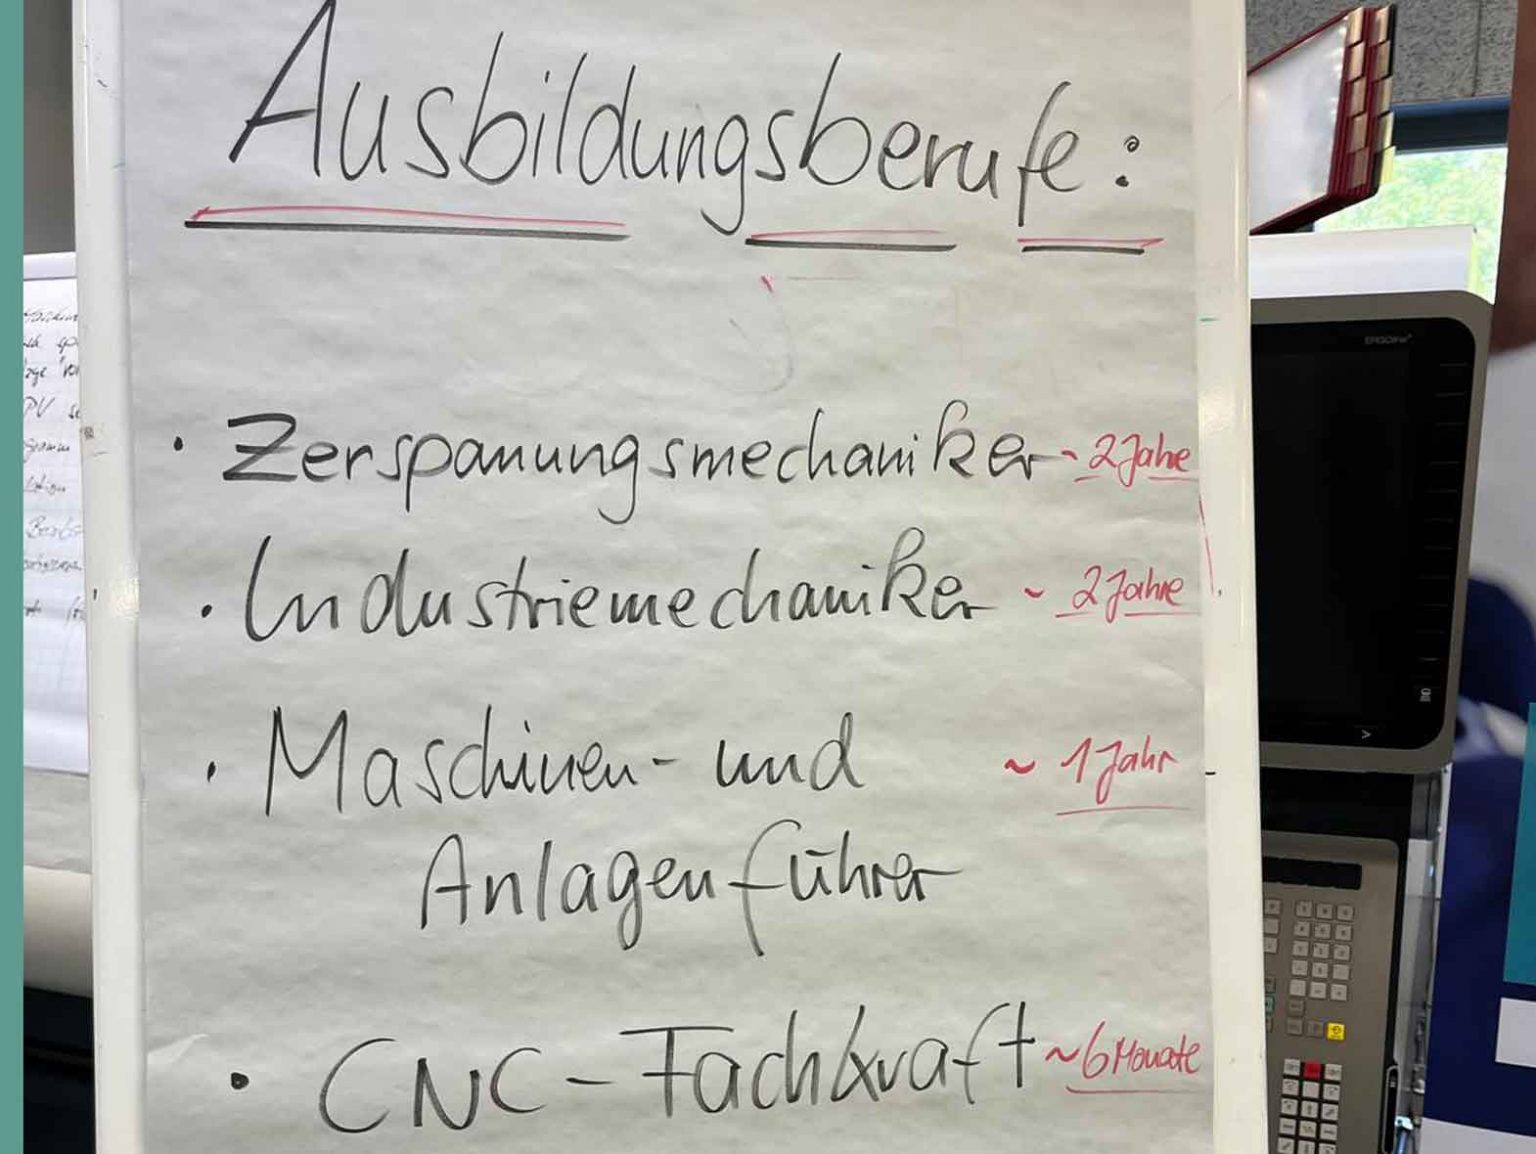 Ausbildungsberufe:
· Zerspanungsmechaniker ~ 2 Jahre
· Industriemechaniker ~ 2 Jahre
· Maschinen- und ~ 1 Jahr
Anlagenführer
· CNC-Fachkraft ~ 6 Monate
PV